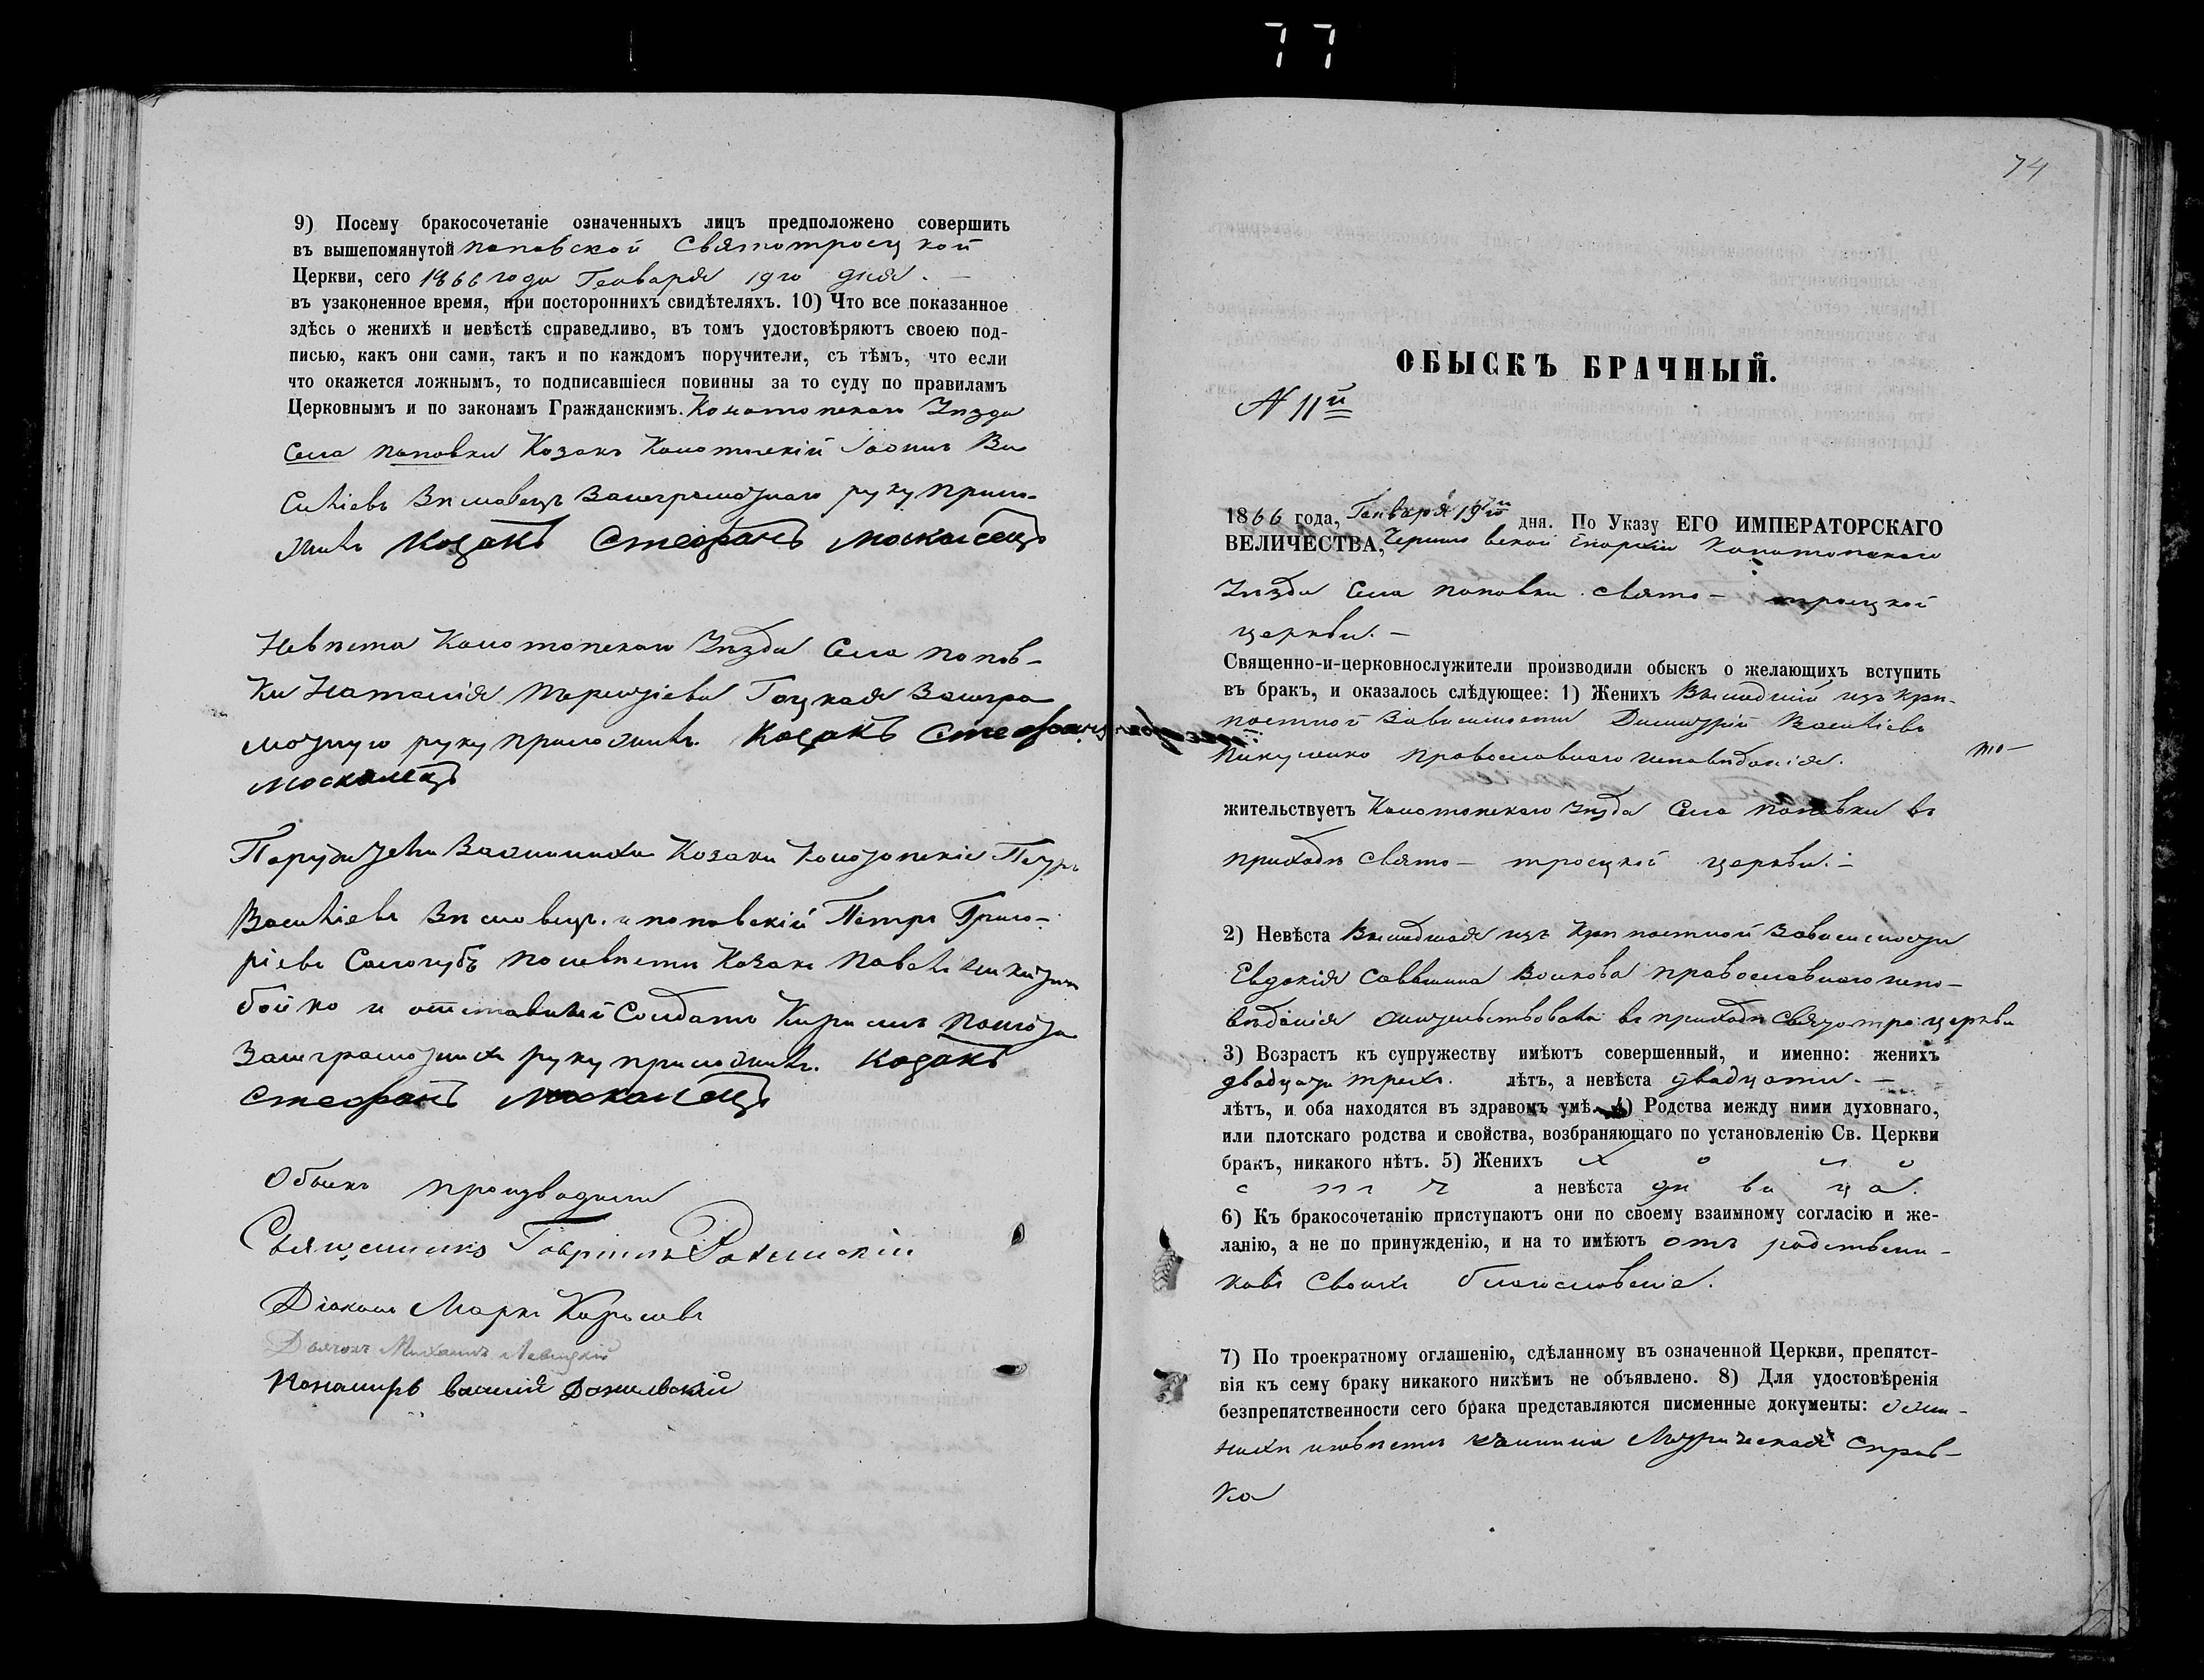 77
9) Посему бракосочетаніе означенныхъ лицъ предположено совершить
въ вышепомянутой Поповской Святотроецкой
Церкви, сего 1866 года Генваря 19го дня. —
въ узаконенное время, при постороннихъ свидѣтеляхъ. 10) Что все показанное
здѣсь о женихѣ и невѣстѣ справедливо, въ томъ удостовѣряютъ своею под-
писью, какъ они сами, такъ и по каждомъ поручители, съ тѣмъ, что если
что окажется ложнымъ, то подписавшіеся повинны за то суду по правиламъ
Церковнымъ и по законамъ Гражданскимъ. Конотопскаго Уѣзда
Села Поповки Козакъ Іоаннъ Ва
силіевъ руку прило-
жилъ Козакъ Стефанъ Москалецъ
Невѣста Конотопскаго Уѣзда Села Попов-
ки Наталія Терентіева Гоцкая Заегра
мотную руку приложилъ. Козакъ Стефанъ
Москалецъ
Поручители Козаки Конотопскіе Петръ
Василіевъ и поповскій Петръ Григо-
ріевъ Сологубъ по невѣсти Козакъ Павелъ
бойко и отставный Солдатъ Кирилъ
руку приложилъ. Козакъ
Стефанъ Москалецъ
Обыскъ производили
Священникъ Гавріилъ
Діаконъ Маркъ
Дьячокъ Михаилъ Левицкій
Пономарь Василій Данилевскій
74
ОБЫСКЪ БРАЧНЫЙ.
N 11й
1866 года, Генваря 19го дня. По Указу ЕГО ИМПЕРАТОРСКАГО
ВЕЛИЧЕСТВА, Черниговской Епархіи Конотопскаго
Уѣзда Села Поповки Свято- троецкой
церкви. —
Священно-и-церковнослужители производили обыскъ о желающихъ вступить
въ бракъ, и оказалось слѣдующее: 1) Женихъ Вышедшій изъ крѣ-
постной Зависимости Димитрій Василіевъ
Пикуленко православнаго исповѣданія.
жительствуетъ Конотопскаго Уѣзда Села Поповки въ
приходѣ Свято- троецкой церкви. —
2) Невѣста Вышедшая изъ Крѣпостной Зависимости
Евдокія Саввина Волкова православнаго испо-
вѣданія жительствовала въ приходѣ Святотро: церкви
3) Возрастъ къ супружеству имѣютъ совершенный, и именно: женихъ
двадцати трехъ. лѣтъ, а невѣста двадцати. —
лѣтъ, и оба находятся въ здравомъ умѣ. 4) Родства между ними духовнаго,
или плотскаго родства и свойства, возбраняющаго по установленію Св. Церкви
бракъ, никакого нѣтъ. 5) Женихъ х о л о
с т ъ а невѣста дѣ ви ца.
6) Къ бракосочетанію приступаютъ они по своему взаимному согласію и же-
ланію, а не по принужденію, и на то имѣютъ отъ родствени-
ковъ Своихъ благословеніе.
7) По троекратному оглашенію, сдѣланному въ означенной Церкви, препятст-
вія къ сему браку никакого никѣмъ не объявлено. 8) Для удостовѣренія
безпрепятственности сего брака представляются писменные документы: о же-
нихѣ и невѣсти Метрическая Справ-
ка